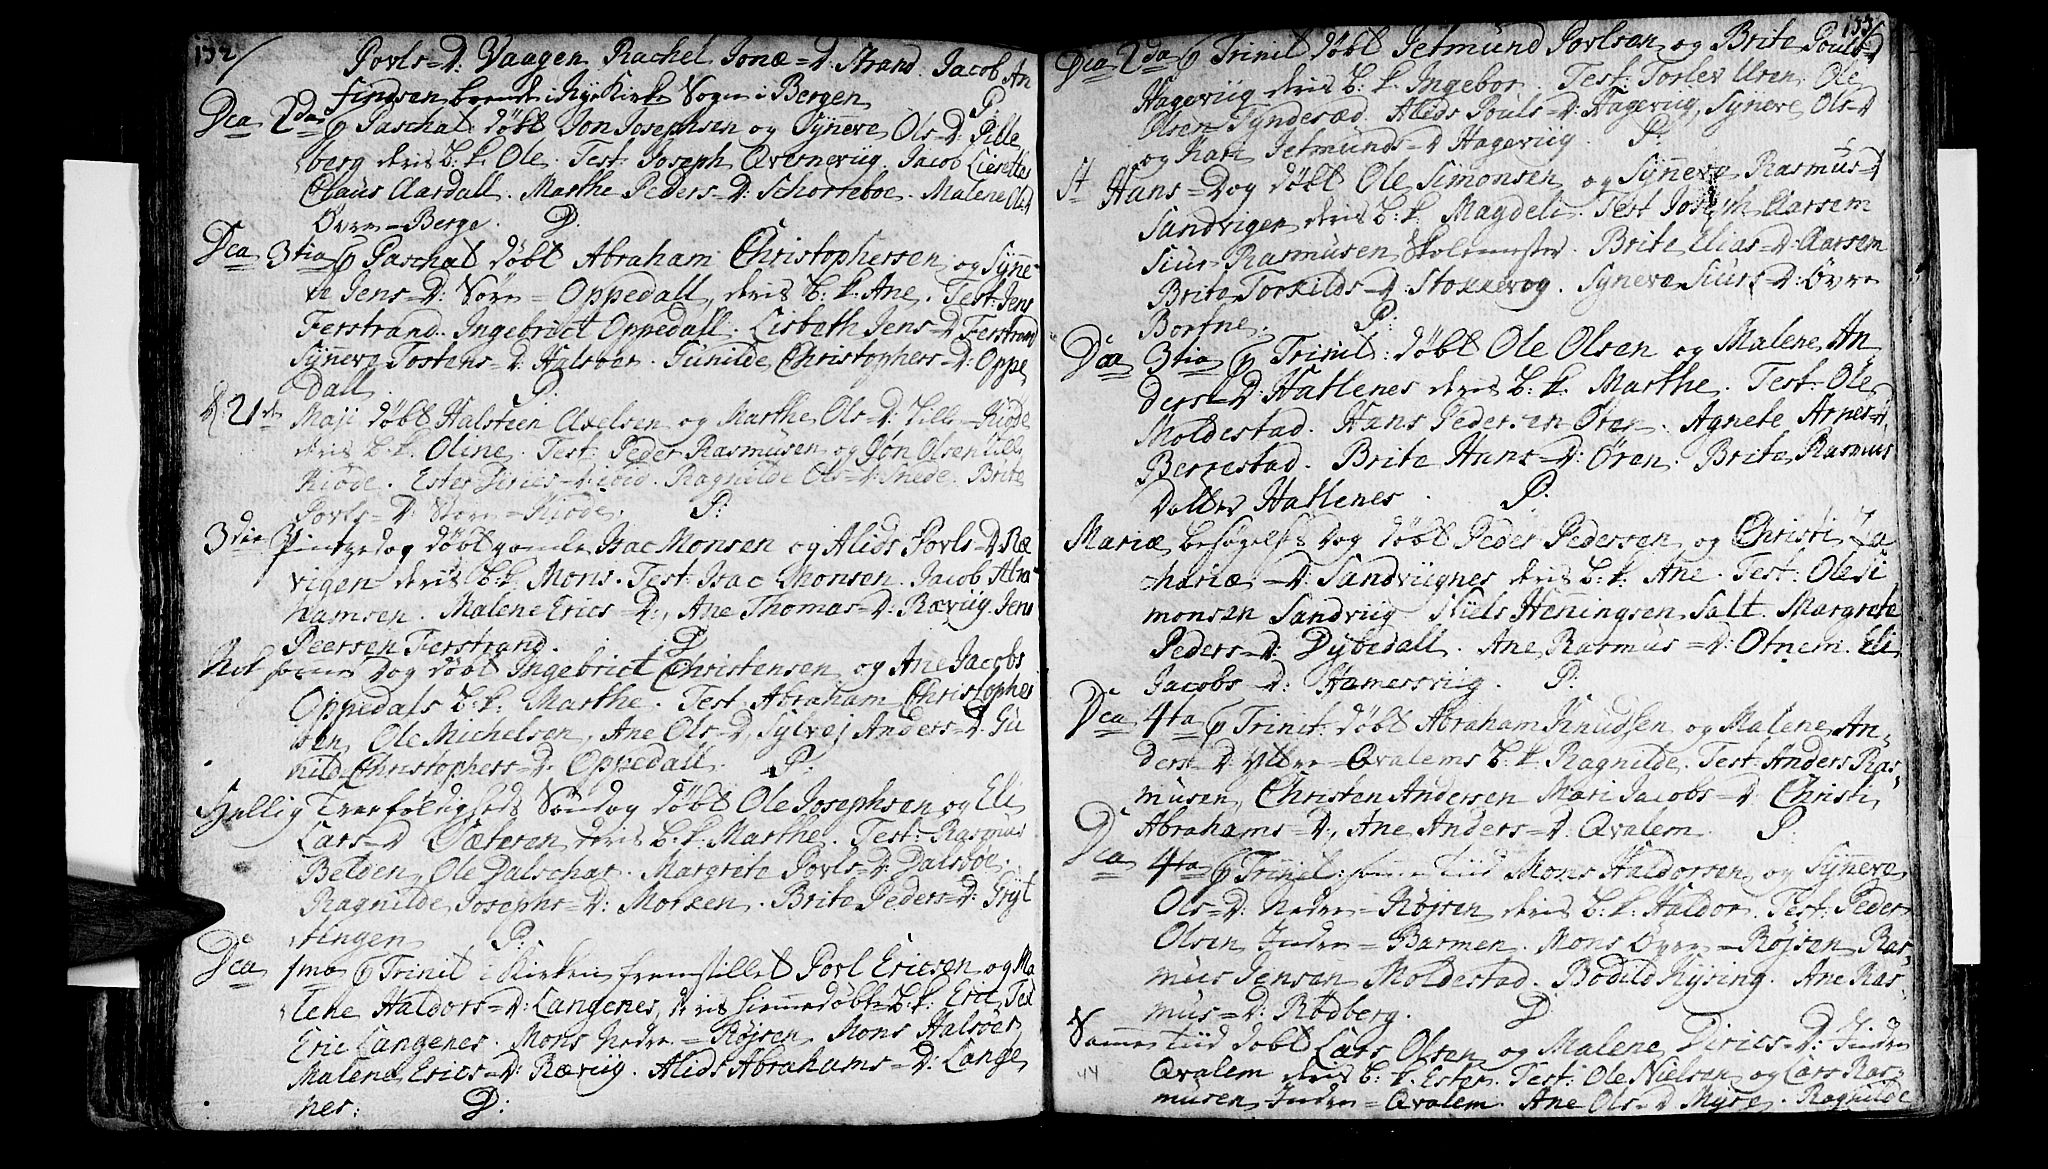 152/
Povls=D: Vaagen Rachel Jonæ=D: Strand. Jacob An
findsen boende i Nye Kirke Sogn i Bergen P:
Dca 2da p Paschat: døbt Jon Josephsen og Sÿneve Ols=D: Pille
berg deris B: k: Ole. Test: Joseph Qverneviig. Jacob Lisette
Claus Aardall. Marthe Peders=D: Schorteboe. Malene Ols D
Øvre=Berge. D.
Dca 3tia p Paschat døbt Abraham Christophersen og Sÿne=
ve Jens=D: Søre=Oppedall, deris B: k: Ane. Test: Jens
Ferstrand. Ingebrict Oppedall. Lisbeth Jens=D Ferstrand
Sÿneve Tostens=D: Halsøer. Gunilde Christophers=D: Oppe
dall. P:
D: 21de Maji døbt Halsteen Axelsen og Marthe Ols=D: Lille=Kiøde
deris B: k: Oline. Test: Peder Rasmusen og Jon Olsen Lille
Kiøde. Ester Dirics=D: ibid. Ragnilde Ols=D: Hede. Brite
Povls=D: Store=Kiøde. P:
3die Pintzedag døbt gamle Isac Monsen og Alids Povls=D Ræ
vigen deris B: k: Mons. Test: Isac Monsen. Jacob Abra=
hamsen. Malene Erics=D:, Ane Thomas=D: Ræviig. Jens
Peersen Ferstrand. D
Net samme Dag døbt Ingebrict Christensen og Ane Jacobs
Oppedals B: k: Marthe. Test: Abraham Christopher
sen, Ole Michelsen, Ane Ols=D, Sylvej Anders=D: Gu
nild Christophers=D: Oppedall. P:
Hellig Trefoldigheds Søndag døbt Ole Josephsen og Eli
Lars=D Sæteren deris B: k: Marthe. Test: Rasmus
Belden, Ole Dalschar. Margrete Povls=D: Dalsbøe.
Ragnilde Josephs=D: Morken. Brite Peders=D: Gryt
tingen P:
Dca 1ma p Trinit i Kirken fremstillet Povl Ericsen og Ma
lene Haldors=D: Langenes, deris hiemmedøbte B: k: Eric. Test
Eric Langenes. Mons Nedre=Røjsen, Mons Halsøer
Malene Erics=D: Ræviig. Alids Abrahams=D: Lange
nes: D:
153/
Dca 2da p Trinit døbt Jetmund Povlsen og Brite Pouls D
Hageviig deris B: k: Ingebor, Test: Torlev Uren, Ole
Olsen Tyndesæd. Alids Pouls=D: Hageviig, Syneve Ols=D
og Kari Jetmunds=D Hageviig. P:
St Hans=Dag døbt Ole Simonsen og Sÿneva Rasmus=D
Sandvigen deris B: k: Magdeli. Test Joseph Aarsem
Siur Rasmusen Skolemester. Brite Elias=D: Aarsem
Brite Torkilds=D: Stokkevog. Syneve Siurs=D: Øvre
Bortne. P:
Dca 3tia p Trinit: døbt Ole Olsen og Malene An
ders=D: Hatlenes deris B: k: Marthe. Test: Ole
Moldestad. Hans Pedersen Ører. Agnete Arnes=D,
Berrestad. Brite Hans=D: Øren. Brite Rasmus
Datter Hatlenes. P:
Mariæ besøgelses Dag døbt Peder Pedersen og Christi Za
chariæ=D: Sandviignes deris B: k: Ane. Test: Ole Si
monsen Sandviig. Niels Heñingsen, Salt. Margrete
Peders=D: Dybedall. Ane Rasmus=D: Ofnem. Eli
Jacobs=D: Hamersviig. P:
Dca 4ta p Trinit: døbt Abraham Knudsen og Malene An=
ders=D: Yttre=Qvalems B: k: Ragnilde. Test Anders Ras=
musen, Christen Andersen Mari Jacobs=D: Christi
Abrahams=D:, Ane Anders=D: Qvalem. P:
Dca 4ta p Trinit: samme tiid Mons Haldorsen og Sÿneve
Ols=D: Nedre=Røjsen deris B: k: Haldor. Test: Peder
Olsen Indre=Barmen. Mons Øvre=Røjsen Ras=
mus Jensen Moldestad. Bodild Kysing. Ane Ras=
mus=D: Rødberg. D:
Samme tiid døbt Lars Olsen og Malene Dirics=D: Indre
Qvalem deris B: k: Ester. Test: Ole Nielsen og Lars Ras=
musen Indre=Qvalem. Ane Ols=D Myre. Ragnilde